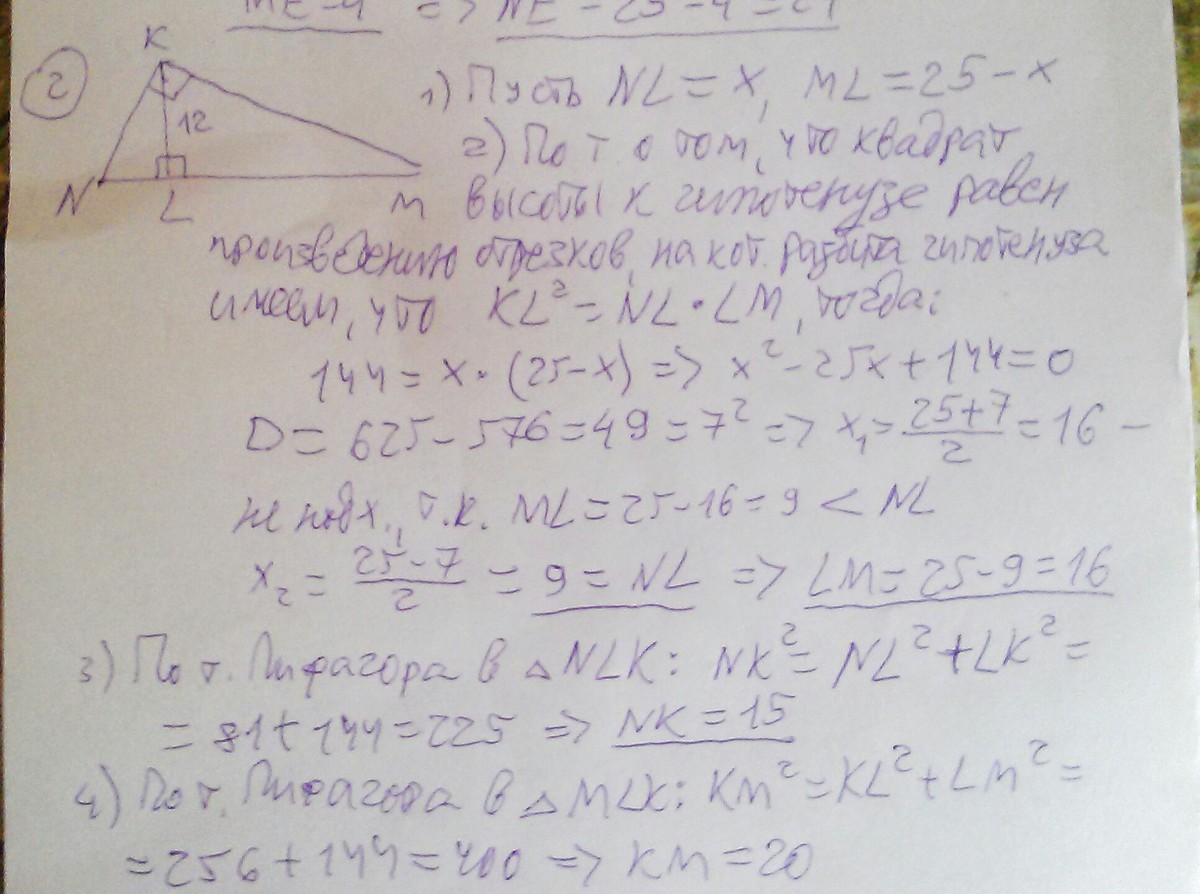 ME=4 => NE=25-4=21
2
K
12
N L M
1) Пусть NL = x, ML = 25 - x
2) По т. о том, что квадрат
высоты к гипотенузе равен
произведению отрезков, на кот. разбита гипотенуза
имеем, что KL² = NL · LM, тогда:
144 = x · (25-x) => x² - 25x + 144 = 0
D = 625 - 576 = 49 = 7² => x₁ = \frac{25+7}{2} = 16 -
не подх., т.к. ML = 25-16 = 9 < NL
x₂ = \frac{25-7}{2} = 9 = NL => LM = 25-9 = 16
3) По т. Пифагора в △NLK: NK² = NL² + LK² =
= 81 + 144 = 225 => NK = 15
4) По т. Пифагора в △MLK: KM² = KL² + LM² =
= 256 + 144 = 400 => KM = 20